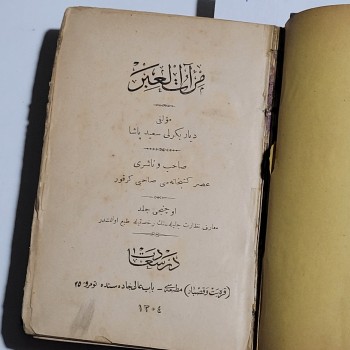 مرآت العبر
مؤلفى
دياربكرلى سعيد پاشا
صاحب و ناشرى
عصر كتبخانه‌سى صاحبى كرقور
اوچنجى جلد
معارف نظارت جليله‌سنك رخصتيله طبع اولنمشدر
درسعادت
(قره‌بت و قصبار) مطبعه‌سى – باب عالى جاده‌سنده نومرو ٢٥
١٣٠٤